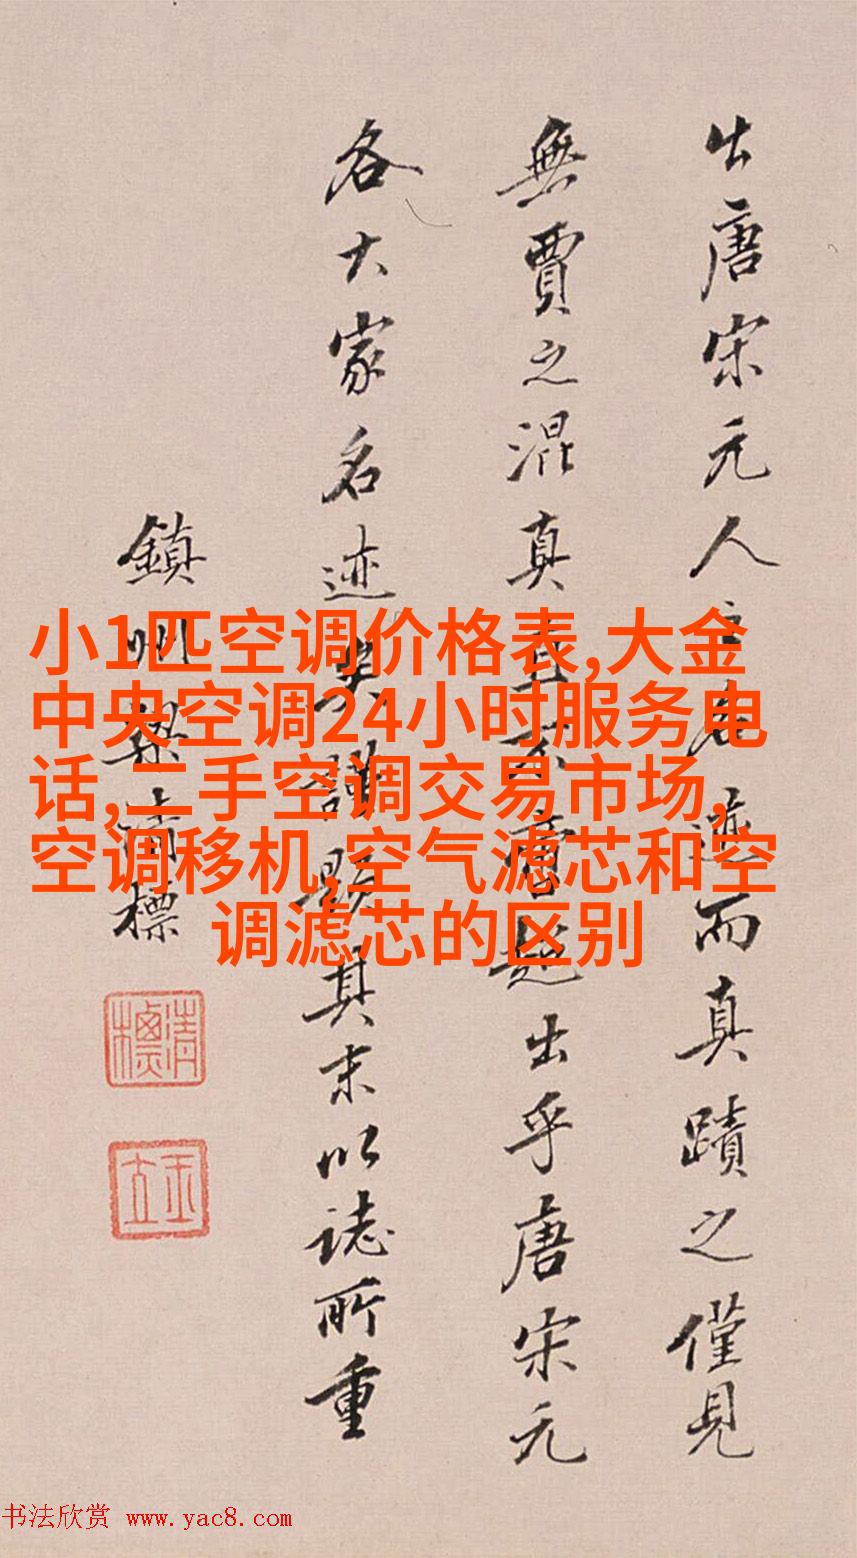 出唐宋元人迹而真蹟之僅見
無賈之混真出乎唐宋元
各大家名迹矣謹題其末以誌所重
鎮州梁清標
小1匹空调价格表,大金
中央空调24小时服务电
话,二手空调交易市场,
空调移机,空气滤芯和空
调滤芯的区别
清標
书法欣赏 www.yac8.com